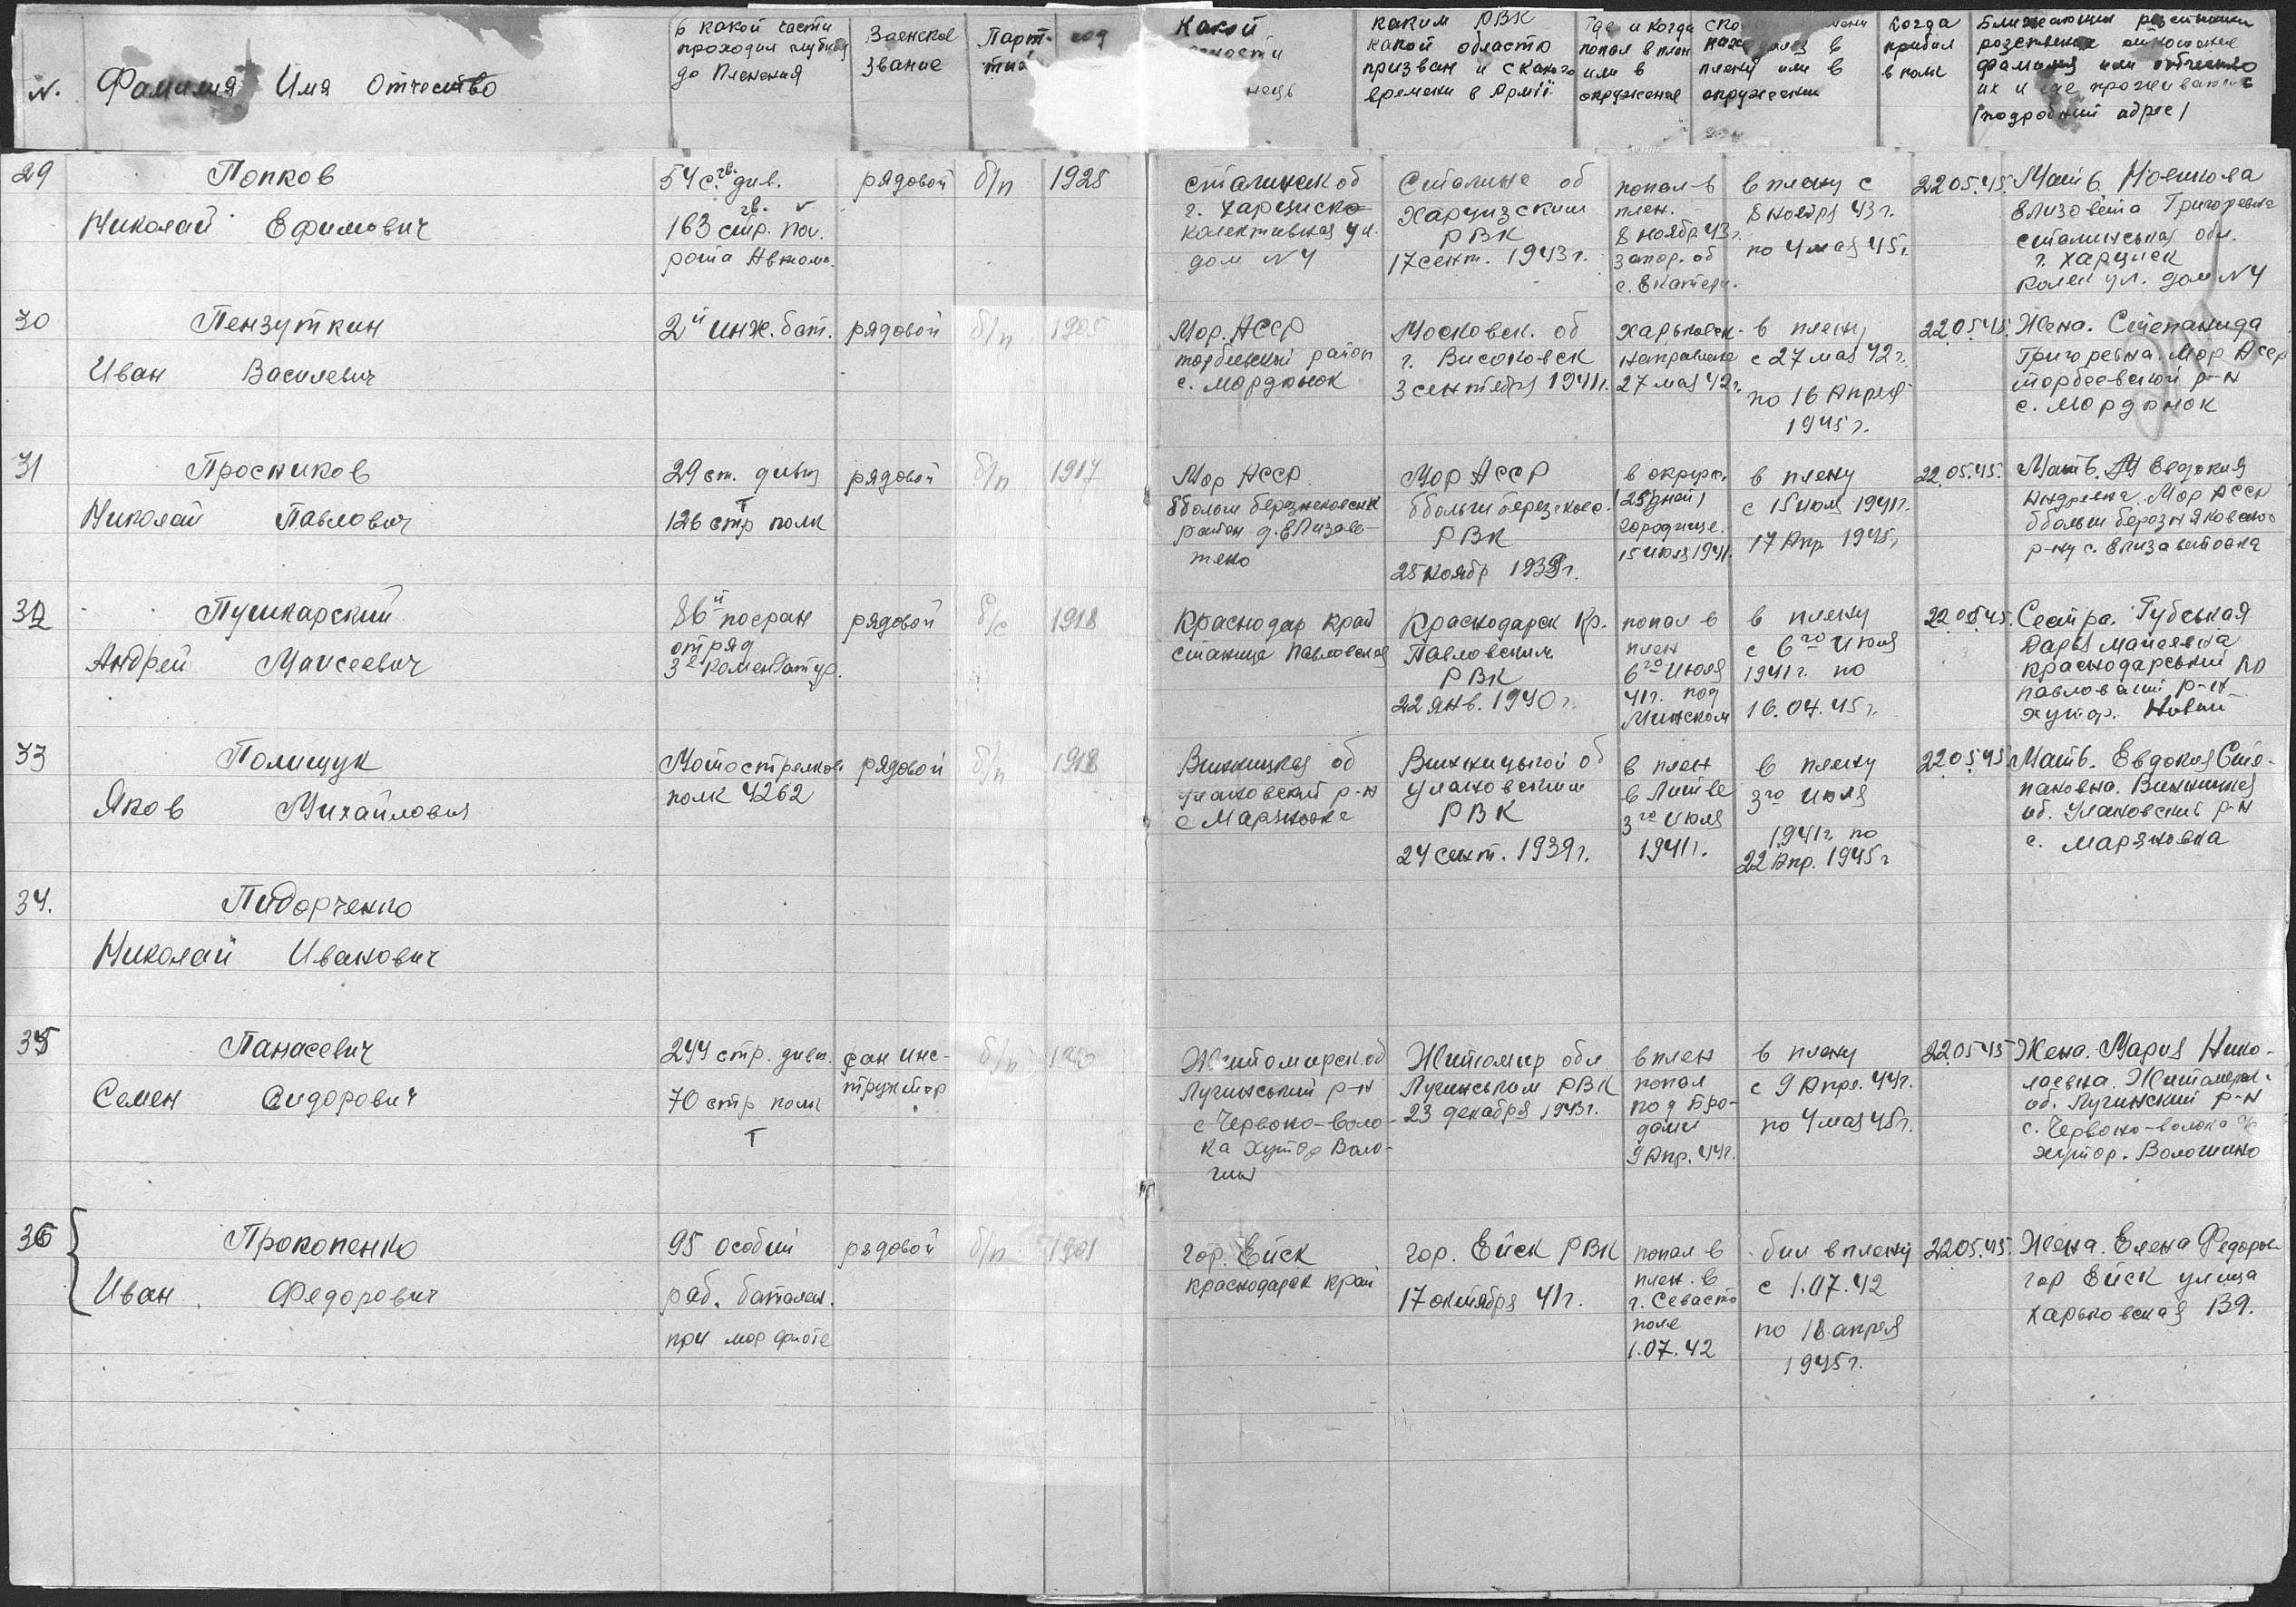 N.
Фамилия Имя Отчество
в какой части
проходил службу
до Пленения
Военское
Звание
Парт
год
Какой
каким РВК
какой областю
призван и с какого
времени в Армії
Где и когда
попал в плен
или в
окружение
плену или в
окружении
Когда
прибил
в полк
их и где проживают
(подробний адрес)
29
Попков
Николай Ефимович
54 с. гв. див.
163 гв. стр. пол.
рота Автом.
рядовой
б/п
1925
сталинск об
г. Харциск
колективная ул.
дом N 4
Сталине об
Харцизским
РВК
17 сент. 1943 г.
попал в
плен.
8 ноябр 43 г.
запор. об
с. Екатери.
в плену с
8 ноября 43 г.
по 4 мая 45 г.
22.05.45.
Мать. Новикова
Елизовета Григоревна
сталинськая обл.
г. Харциск
Колек ул. дом N 4
30
Пензуткин
Иван Василевич
2й инж. бат.
рядовой
б/п
1905
Мор. АССР
торбиевский район
с. Мордюнок
Московск. об
г. Високовск
3 сентября 1941 г.
Харьковск.
направлен
27 мая 42 г.
в плену
с 27 мая 42 г.
по 16 Апреля
1945 г.
22.05.45.
Жена. Степанида
Григоревна. Мор АССР
торбеевский р-н
с. Мордюнок
31
Просников
Николай Павлович
29 ст. дивиз
126 стр полк
рядовой
б/п
1917
Мор АССР
район д. Елизаве-
тено
Мор АССР
РВК
25 ноябр 1939 г.
в окруж.
(25 дней)
городище.
15 июля 1941
в плену
с 15 июля 1941 г.
17 Апр 1945 г.
22.05.45.
Мать. Евдокия
Андреевна. Мор АССР
р-ну с. Елизаветовка
32
Пушкарский
Андрей Моисеевич
86й погран
отряд
3я комендатур.
рядовой
б/п
1918
Краснодар край
станица Павловская
Краснодарск Кр.
Павловским
РВК
22 янв. 1940 г.
попал в
плен
6го Июля
41 г. под
Минском
в плену
с 6го Июля
1941 г. по
16.04.45 г.
22.05.45.
Сестра. Губськая
Дарья Мойсеевна
краснодарський
павловский р-н
хутор. Новый
33
Полищук
Яков Михайлович
Мотострелков
полк 4262
рядовой
б/п
1918
Винницкая об
улановский р-н
с Маряновка
Винницькой об
улановским
РВК
24 сент. 1939 г.
в плен
в Литве
3го Июля
1941 г.
в плену
3го Июля
1941 г. по
22 Апр. 1945 г
22.05.45
Мать. Евдокия Сте-
пановна. Винницкая
об. Улановский р-н
с. Маряновка
34.
Пидорченко
Николай Иванович
35
Панасевич
Семен Сидорович
244 стр. дивиз.
70 стр полк
Т
сан инс-
труктор
б/п
Житомирск об
Лугинський р-н
с Червоно-воло-
ка Хутор Воло-
Житомир обл
Лугинським РВК
23 декабря 1943 г.
в плен
попал
под Бро-
дами
9 Апр. 44 г.
в плену
с 9 Апре. 44 г.
по 4 мая 45 г.
22.05.45
Жена. Мария Нико-
лаевна. Житомирск.
об. Лугинский р-н
с. Червоно-волока
хутор. Волошино
36
Прокопенко
Иван Федорович
95 особий
раб. батален.
при мор флоте
рядовой
б/п
1901
гор. Ейск
краснодарск край
гор. Ейск РВК
17 октября 41 г.
попал в
плен. в
г. Севасто
поле
1.07.42
бил в плену
с 1.07.42
по 18 апреля
1945 г.
22.05.45.
Жена. Елена Федоров
гор Ейск улица
Харьковская 139.